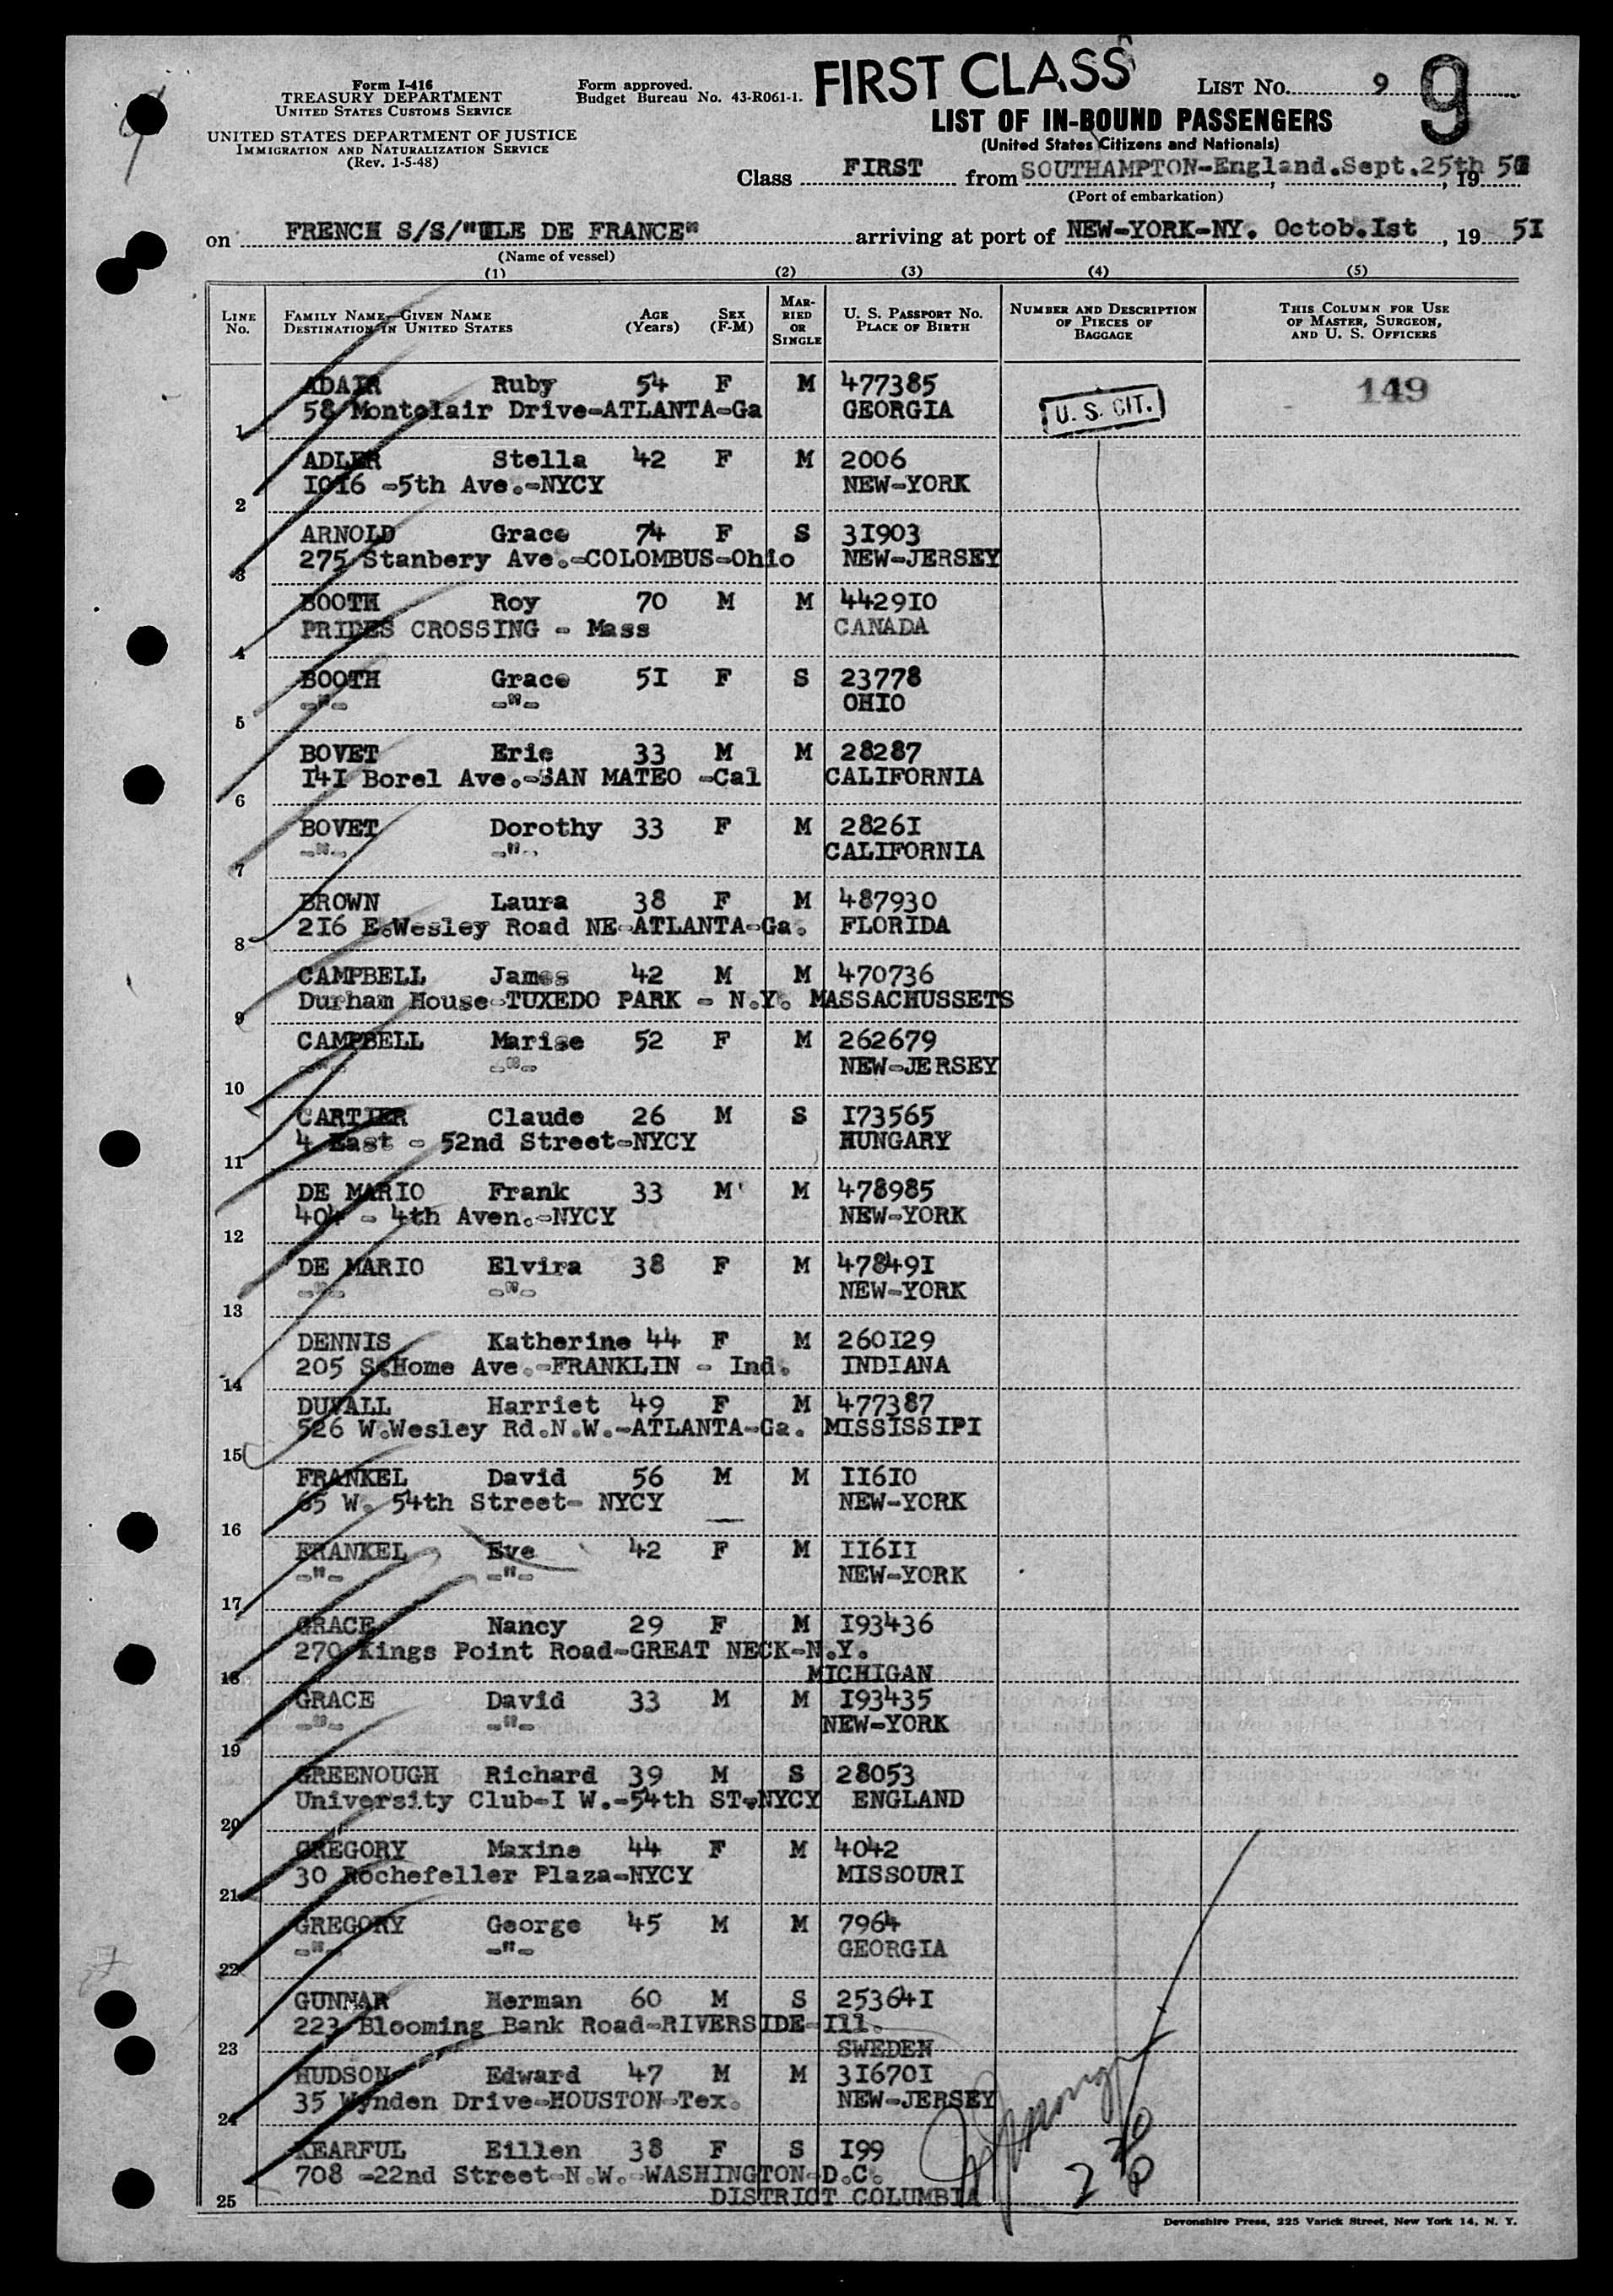 FIRST CLASS
Form I-416
TREASURY DEPARTMENT
UNITED STATES CUSTOMS SERVICE
UNITED STATES DEPARTMENT OF JUSTICE
IMMIGRATION AND NATURALIZATION SERVICE
(Rev. 1-5-48)
Form approved.
Budget Bureau No. 43-R061-1.
LIST No. 9 9
LIST OF IN-BOUND PASSENGERS
(United States Citizens and Nationals)
Class FIRST from SOUTHAMPTON-England.Sept.25th, 19
(Port of embarkation)
on FRENCH S/S/"ILE DE FRANCE" arriving at port of NEW-YORK-NY. Octob.Ist, 19 5I
(Name of vessel)
(1) (2) (3) (4) (5)
LINE No. FAMILY NAME—GIVEN NAME DESTINATION IN UNITED STATES AGE (Years) SEX (F-M) MARRIED OR SINGLE U. S. PASSPORT No. PLACE OF BIRTH NUMBER AND DESCRIPTION OF PIECES OF BAGGAGE THIS COLUMN FOR USE OF MASTER, SURGEON, AND U. S. OFFICERS
ADAIR Ruby 54 F M 477385 149
58 Montclair Drive-ATLANTA-Ga GEORGIA U. S. CIT.
1
ADLER Stella 42 F M 2006
I0I6 -5th Ave.-NYCY NEW-YORK
2
ARNOLD Grace 74 F S 3I903
275 Stanbery Ave.-COLOMBUS-Ohio NEW-JERSEY
3
BOOTH Roy 70 M M 4429I0
PRIDES CROSSING - Mass CANADA
4
BOOTH Grace 5I F S 23778
-"- -"- OHIO
5
BOVET Eric 33 M M 28287
I4I Borel Ave.-SAN MATEO -Cal CALIFORNIA
6
BOVET Dorothy 33 F M 2826I
-"- -"- CALIFORNIA
7
BROWN Laura 38 F M 487930
2I6 E.Wesley Road NE-ATLANTA-Ga. FLORIDA
8
CAMPBELL James 42 M M 470736
Durham House-TUXEDO PARK - N.Y. MASSACHUSSETS
9
CAMPBELL Marise 52 F M 262679
-"- -"- NEW-JERSEY
10
CARTIER Claude 26 M S I73565
4 East - 52nd Street-NYCY HUNGARY
11
DE MARIO Frank 33 M M 478985
404 - 4th Aven.-NYCY NEW-YORK
12
DE MARIO Elvira 38 F M 47849I
-"- -"- NEW-YORK
13
DENNIS Katherine 44 F M 260I29
205 S.Home Ave.-FRANKLIN - Ind. INDIANA
14
DUVALL Harriet 49 F M 477387
526 W.Wesley Rd.N.W.-ATLANTA-Ga. MISSISSIPI
15
FRANKEL David 56 M M II6I0
65 W. 54th Street- NYCY NEW-YORK
16
FRANKEL Eve 42 F M II6II
-"- -"- NEW-YORK
17
GRACE Nancy 29 F M I93436
270 Kings Point Road-GREAT NECK-N.Y.
18 MICHIGAN
GRACE David 33 M M I93435
-"- -"- NEW-YORK
19
GREENOUGH Richard 39 M S 28053
University Club-I W.-54th ST.NYCY ENGLAND
20
GREGORY Maxine 44 F M 4042
30 Rochefeller Plaza-NYCY MISSOURI
21
GREGORY George 45 M M 7964
-"- -"- GEORGIA
22
GUNNAR Herman 60 M S 25364I
223 Blooming Bank Road-RIVERSIDE-Ill.
23 SWEDEN
HUDSON Edward 47 M M 3I670I
35 Wynden Drive-HOUSTON-Tex. NEW-JERSEY
24
KEARFUL Eillen 38 F S I99
708 -22nd Street-N.W.-WASHINGTON-D.C.
25 DISTRICT COLUMBIA
Devonshire Press, 225 Varick Street, New York 14, N. Y.